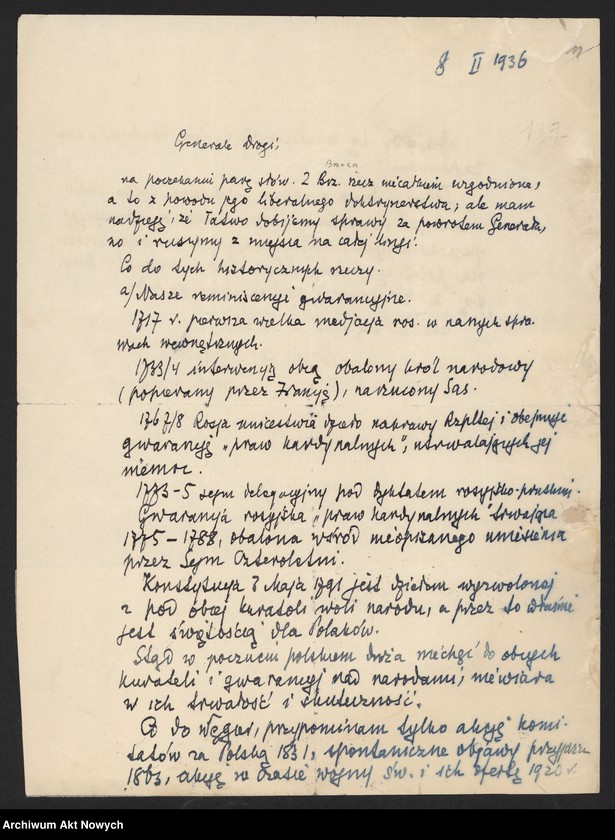 8 II 1936
Generale Drogi,
na poczekaniu parę słów. Z Brz. rzecz niecałkiem uzgodniona,
a to z powodu jego liberalnego doktrynerstwa; ale mam
nadzieję, że łatwo dobijemy sprawy za powrotem Generała,
no i ruszymy z miejsca na całej linji.
Co do tych historycznych rzeczy.
a/ Nasze reminiscencje gwarancyjne.
1717 r. pierwsza wielka medjacja ros. w naszych spra-
wach wewnętrznych.
1733/4 interwencją obcą obalony król narodowy
(popierany przez Francję), narzucony Sas.
1767/8 Rosja unicestwia dzieło naprawy Rzpltej i obejmuje
gwarancję „praw kardynalnych", utrwalających jej
niemoc.
1773-5 sejm delegacyjny pod dyktatem rosyjsko-pruskim.
Gwarancja rosyjska „praw kardynalnych" trwająca
1775-1788, obalona wśród nieopisanego uniesienia
przez Sejm Czteroletni.
Konstytucja 3 Maja 1791 jest dziełem wyzwolonej
z pod obcej kurateli woli narodu, a przez to właśnie
jest świętością dla Polaków.
Stąd w poczuciu polskiem duża niechęć do obcych
kurateli i gwarancyj nad narodami, niewiara
w ich trwałość i skuteczność.
Co do Węgier, przypominam tylko akcję komi-
tatów za Polską 1831, spontaniczne objawy przyjaźni
1863, akcję w czasie wojny św. i ich ofertę 1920 r.
Archiwum Akt Nowych